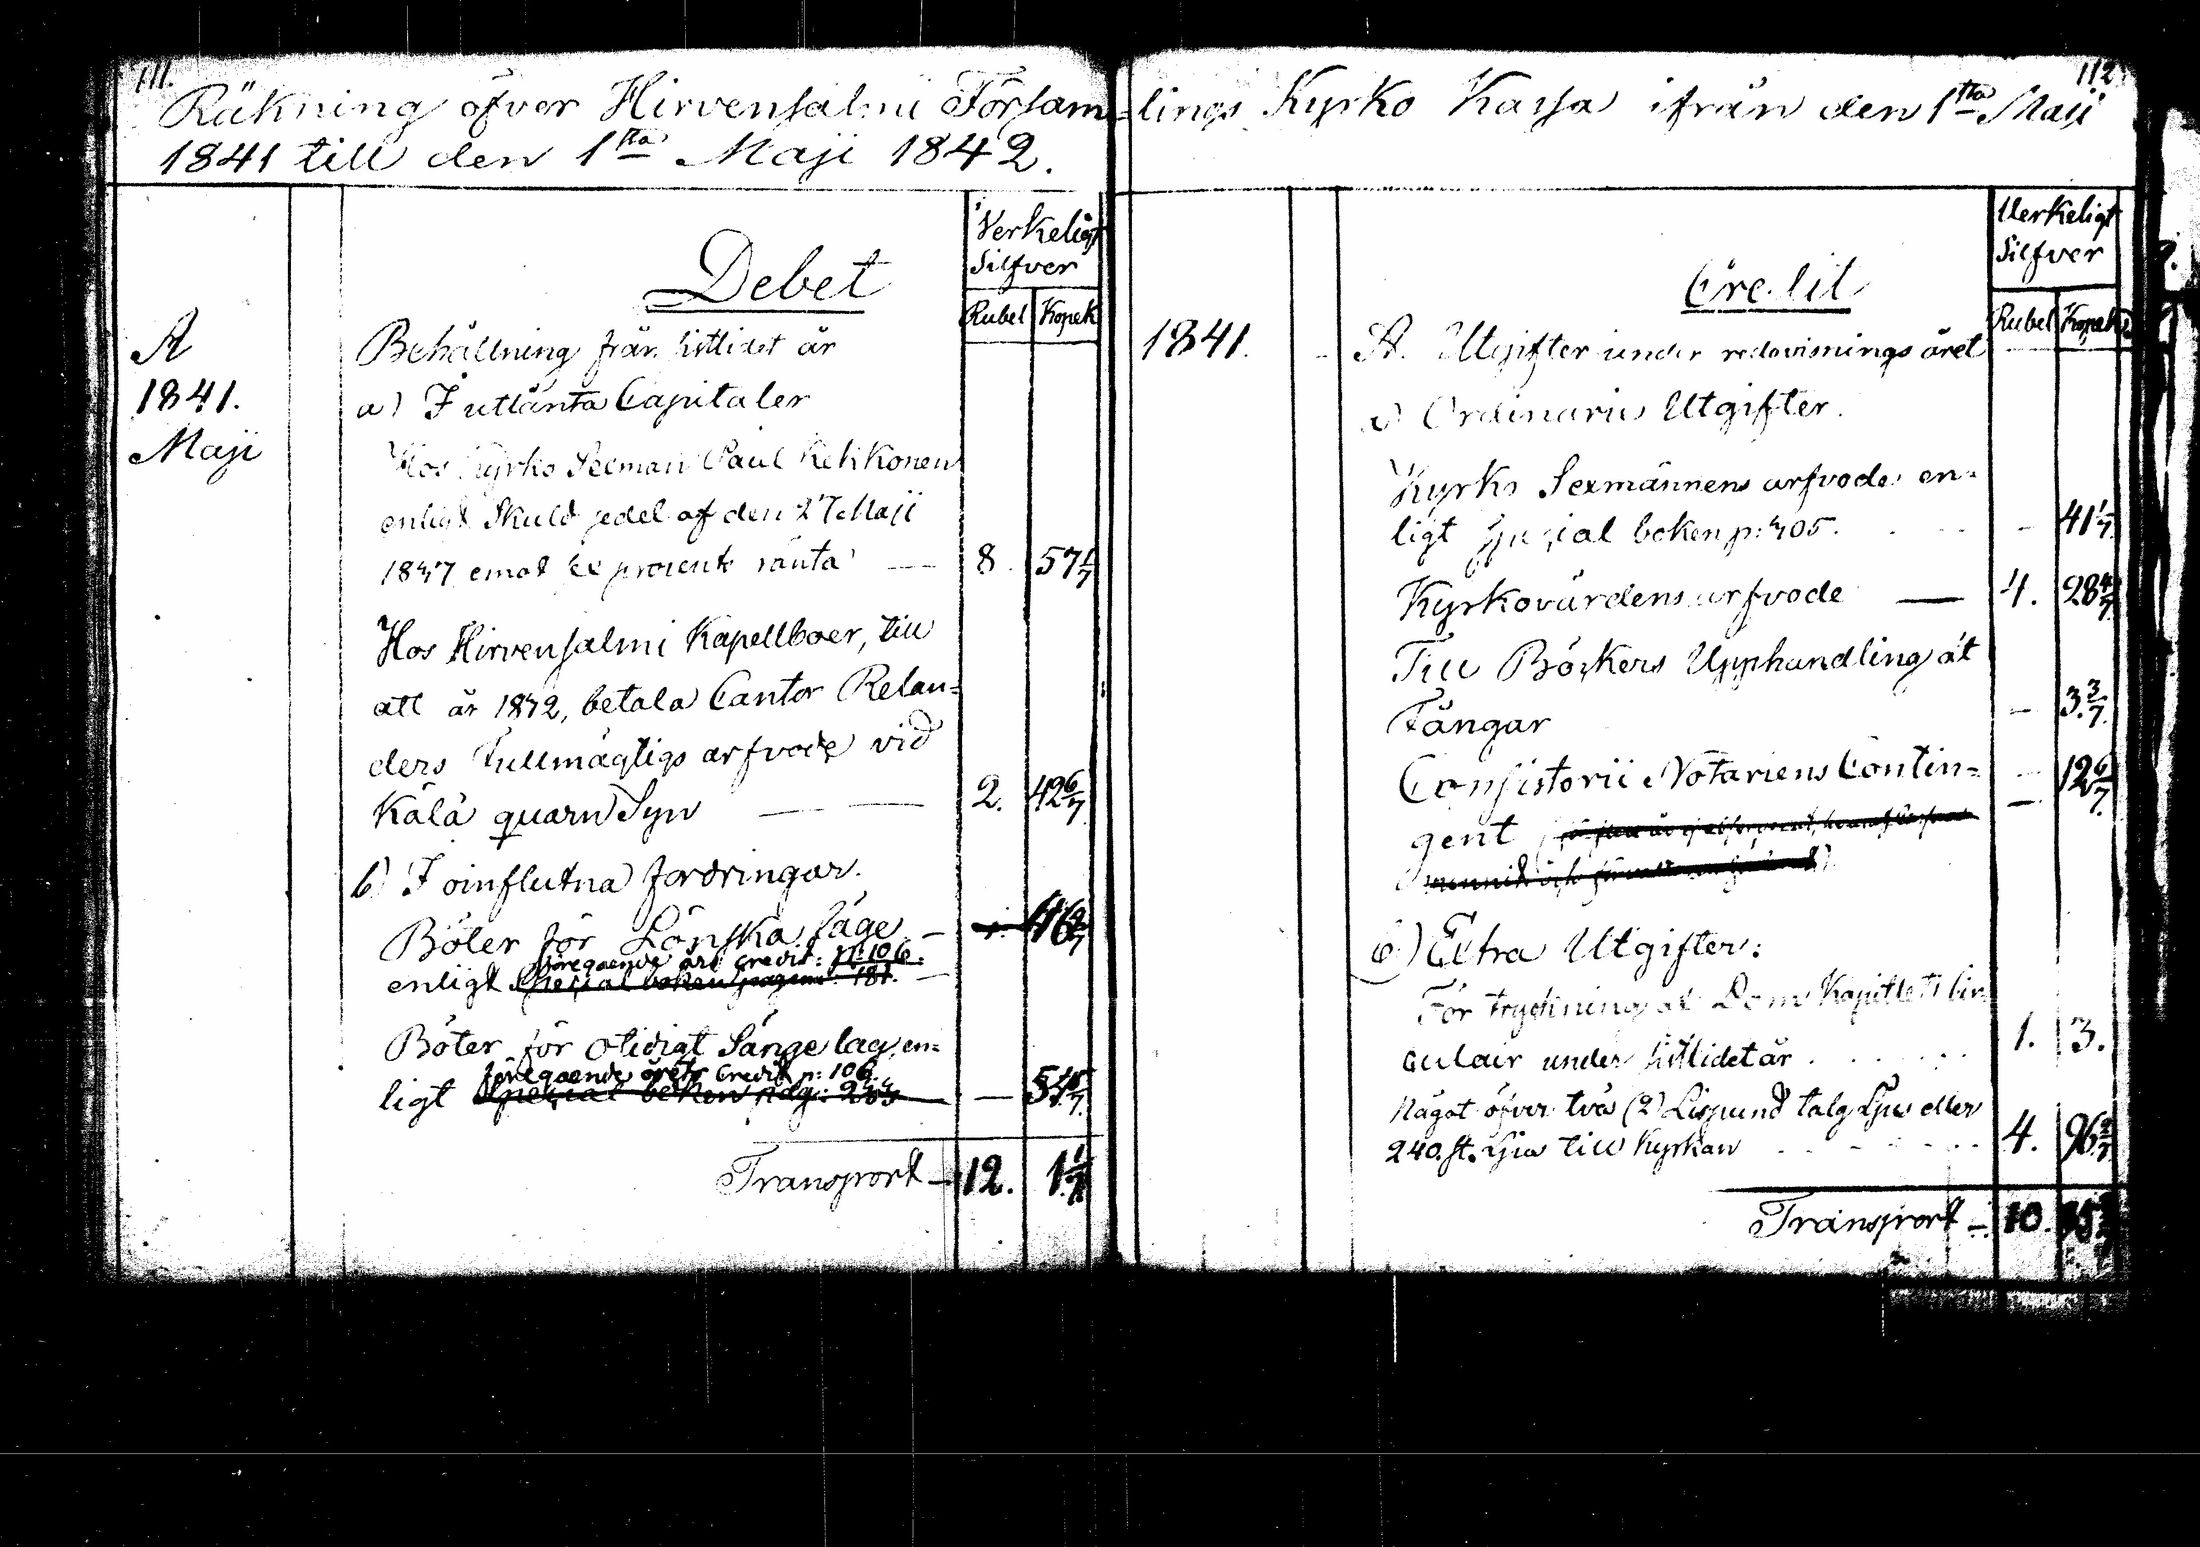 111.
112.
Räkning öfver Hirvensalmi Försam=lings Kyrko Kassa ifrån den 1sta Maji
1841 till den 1sta Maji 1842.
Verkeligt
Silfver
Debet
Rubel Kopek
A
1841.
Maji
Behållning från sistlidet år
a) I utlänta Capitaler
Hos Kyrko Sexman Paul Kekkonen
enligt Skuldzedel af den 27 Maji
1837 emot sex procents ränta — 8. 57 1/7
Hos Hirvensalmi Kapellboer, till
att år 1842, betala Cantor Relan=
ders Fullmägtigs arfvode vid
Kälä quarn Syn — — 2. 42 6/7
b) I oinflutna fordringar.
Böter för Lönska läge —
föregaende års Credit: p: 106.
enligt Special boken pagina: 181. —
Böter för otidigt Sänge lag, en=
föregaende årets Credit p: 106
ligt Special boken pag: 203 —
Transport — 12. 1 1/7
Verkeligt
Silfver
Credit
Rubel Kopek
1841.
A. Utgifter under redovisnings året
a) Ordinarie Utgifter.
Kyrko Sexmännens arfvode en=
ligt Spezial boken p: 405. — 41 1/7
Kyrkovärdens arfvode — 4. 28 4/7
Till Böckers Upphandling åt
Fångar — 3 3/7
Consistorii Notariens Contin= — 12 6/7
gent
b) Extra Utgifter:
För tryckning af Dom Kapitlets Cir=
culair under sistlidet år 1. 3.
Något öfver två (2) Lispund talg Ljus eller
240. st. Ljus till Kyrkan 4. 96 2/7
Transport — 10.